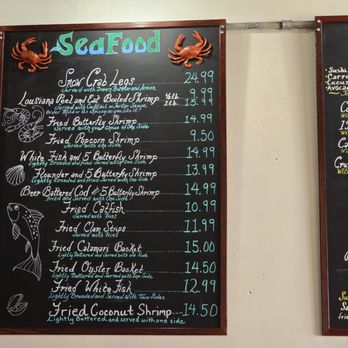 SeaFood
Snow Crab Legs 24.99
Served with Drawn Butter and Lemon
Louisiana Peel and Eat Boiled Shrimp ½ lb. 9.99
Served with Cocktail or Tartar Sauce 1 lb. 15.99
Fried Butterfly Shrimp 14.99
Served with your Choice of One Side
Fried Popcorn Shrimp 9.50
Served with One Side
White Fish and 5 Butterfly Shrimp 14.99
Lightly Breaded and Fried Served with One Side
Flounder and 5 Butterfly Shrimp 13.99
Lightly Breaded and Fried Served with One Side
Beer Battered Cod & 5 Butterfly Shrimp 14.99
Fried and Served with One Side
Fried Catfish 10.99
Served with Fries
Fried Clam Strips 11.99
Served with Fries
Fried Calamari Basket 15.00
Lightly Battered and Served with One Side
Fried Oyster Basket 14.50
Lightly Battered and Served with One Side
Fried White Fish 12.99
Lightly Breaded and Served with Two Sides
Fried Coconut Shrimp 14.50
Lightly Battered and served with one side